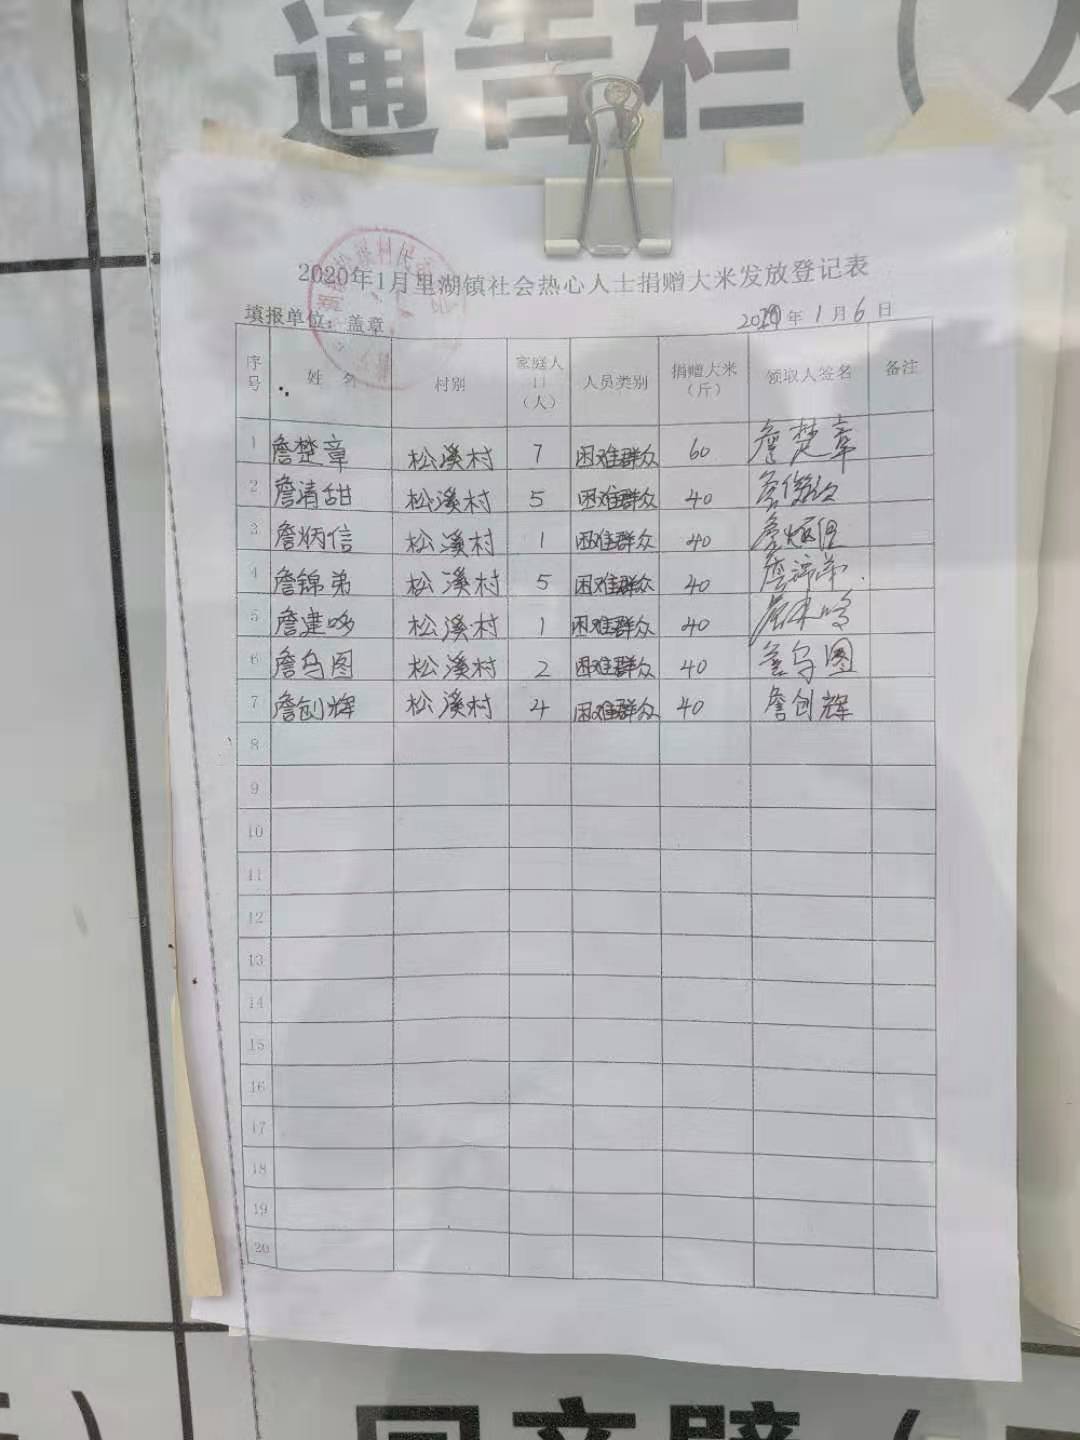 通告栏（
2020年1月里湖镇社会热心人士捐赠大米发放登记表
填报单位：盖章 年 1 月 6 日
序号 姓 名 村别 家庭人口（人） 人员类别 捐赠大米（斤） 领取人签名 备注
1 詹楚章 松溪村 7 困难群众 60 詹楚章
2 詹清甜 松溪村 5 困难群众 40
3 詹炳信 松溪村 1 困难群众 40
4 詹锦弟 松溪村 5 困难群众 40
5 詹建哆 松溪村 1 困难群众 40
6 詹乌图 松溪村 2 困难群众 40 詹乌图
7 詹创辉 松溪村 4 困难群众 40 詹创辉
8
9
10
11
12
13
14
15
16
17
18
19
20